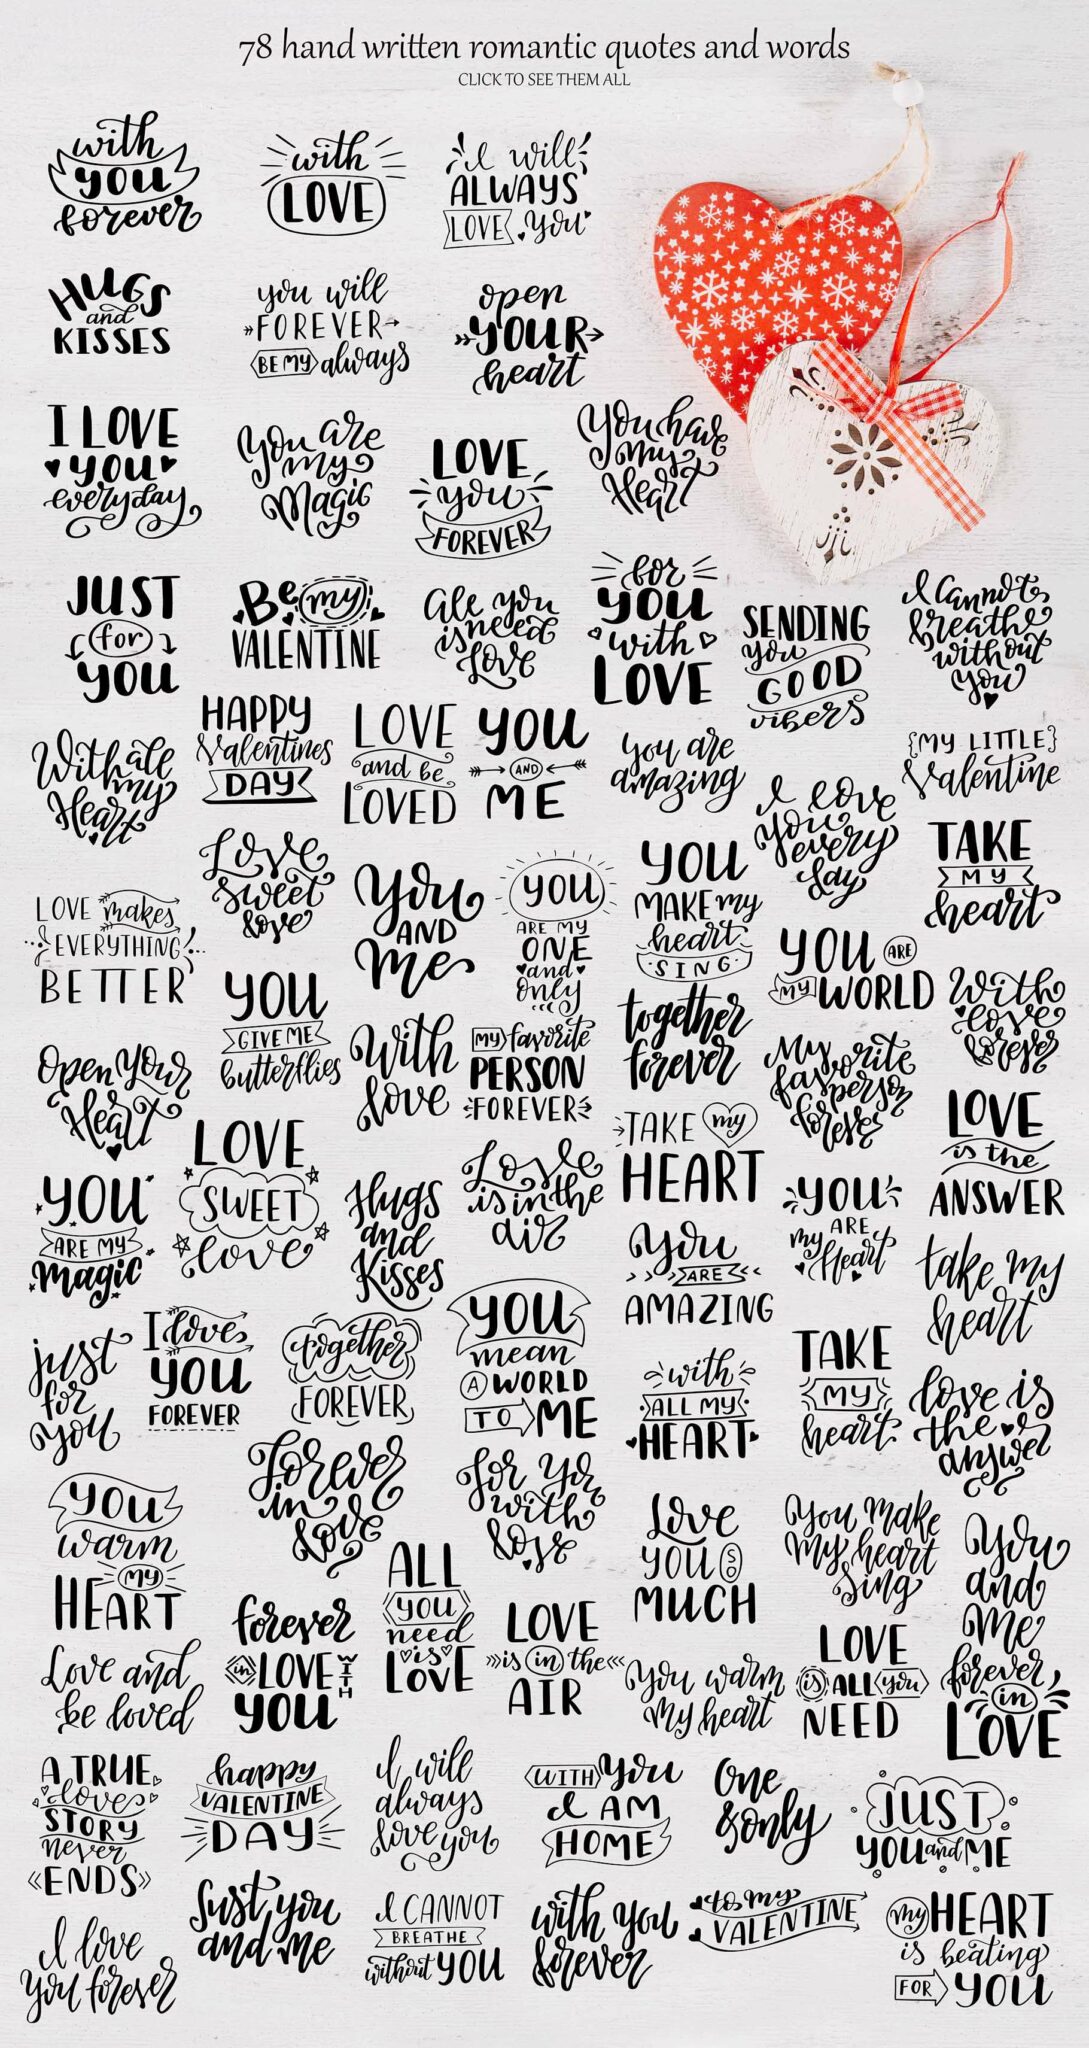 78 hand written romantic quotes and words
CLICK TO SEE THEM ALL
with
YOU
forever
with
LOVE
I will
ALWAYS
LOVE you
HUGS
and
KISSES
you will
FOREVER
BE MY always
open
YOUR
heart
I LOVE
YOU
everyday
You are
my
Magic
LOVE
you
FOREVER
You have
my
Heart
JUST
for
YOU
Be my
VALENTINE
All you
is need
Love
for
YOU
with
LOVE
SENDING
you
GOOD
vibers
I Cannot
breathe
without
you
With all
my
Heart
HAPPY
Valentines
DAY
LOVE
and be
LOVED
YOU
AND
ME
you are
amazing
I love
you
every
day
{MY LITTLE}
Valentine
LOVE makes
EVERYTHING
BETTER
Love
sweet
love
You
AND
me
YOU
ARE MY
ONE
and
only
YOU
MAKE my
heart
SING
TAKE
MY
heart
YOU ARE
MY WORLD
With
love
forever
Open Your
Heart
YOU
GIVE ME
butterflies
With
love
MY favorite
PERSON
FOREVER
together
forever
My
favorite
person
forever
LOVE
is the
ANSWER
YOU
ARE MY
magic
LOVE
SWEET
love
Hugs
and
Kisses
Love
is in the
air
TAKE my
HEART
You
ARE
AMAZING
YOU
ARE
my Heart
take my
heart
just
for
you
I love
YOU
FOREVER
together
FOREVER
YOU
mean
A WORLD
TO ME
with
ALL MY
HEART
TAKE
MY
heart
love is
the
answer
YOU
warm
MY
HEART
Forever
in
Love
For You
with
love
Love
YOU SO
MUCH
You make
My heart
Sing
You
and
Me
forever
in
LOVE
Love and
be loved
forever
in LOVE WITH
YOU
ALL
YOU
need
is
LOVE
LOVE
is in the
AIR
You warm
my heart
LOVE
is ALL you
NEED
A TRUE
love
STORY
never
ENDS
happy
VALENTINE
DAY
I will
always
love you
WITH You
I AM
HOME
One
&only
JUST
YOU and ME
I love
you forever
Just you
and me
I CANNOT
BREATHE
without YOU
with you
forever
to my
VALENTINE
my HEART
is beating
FOR YOU